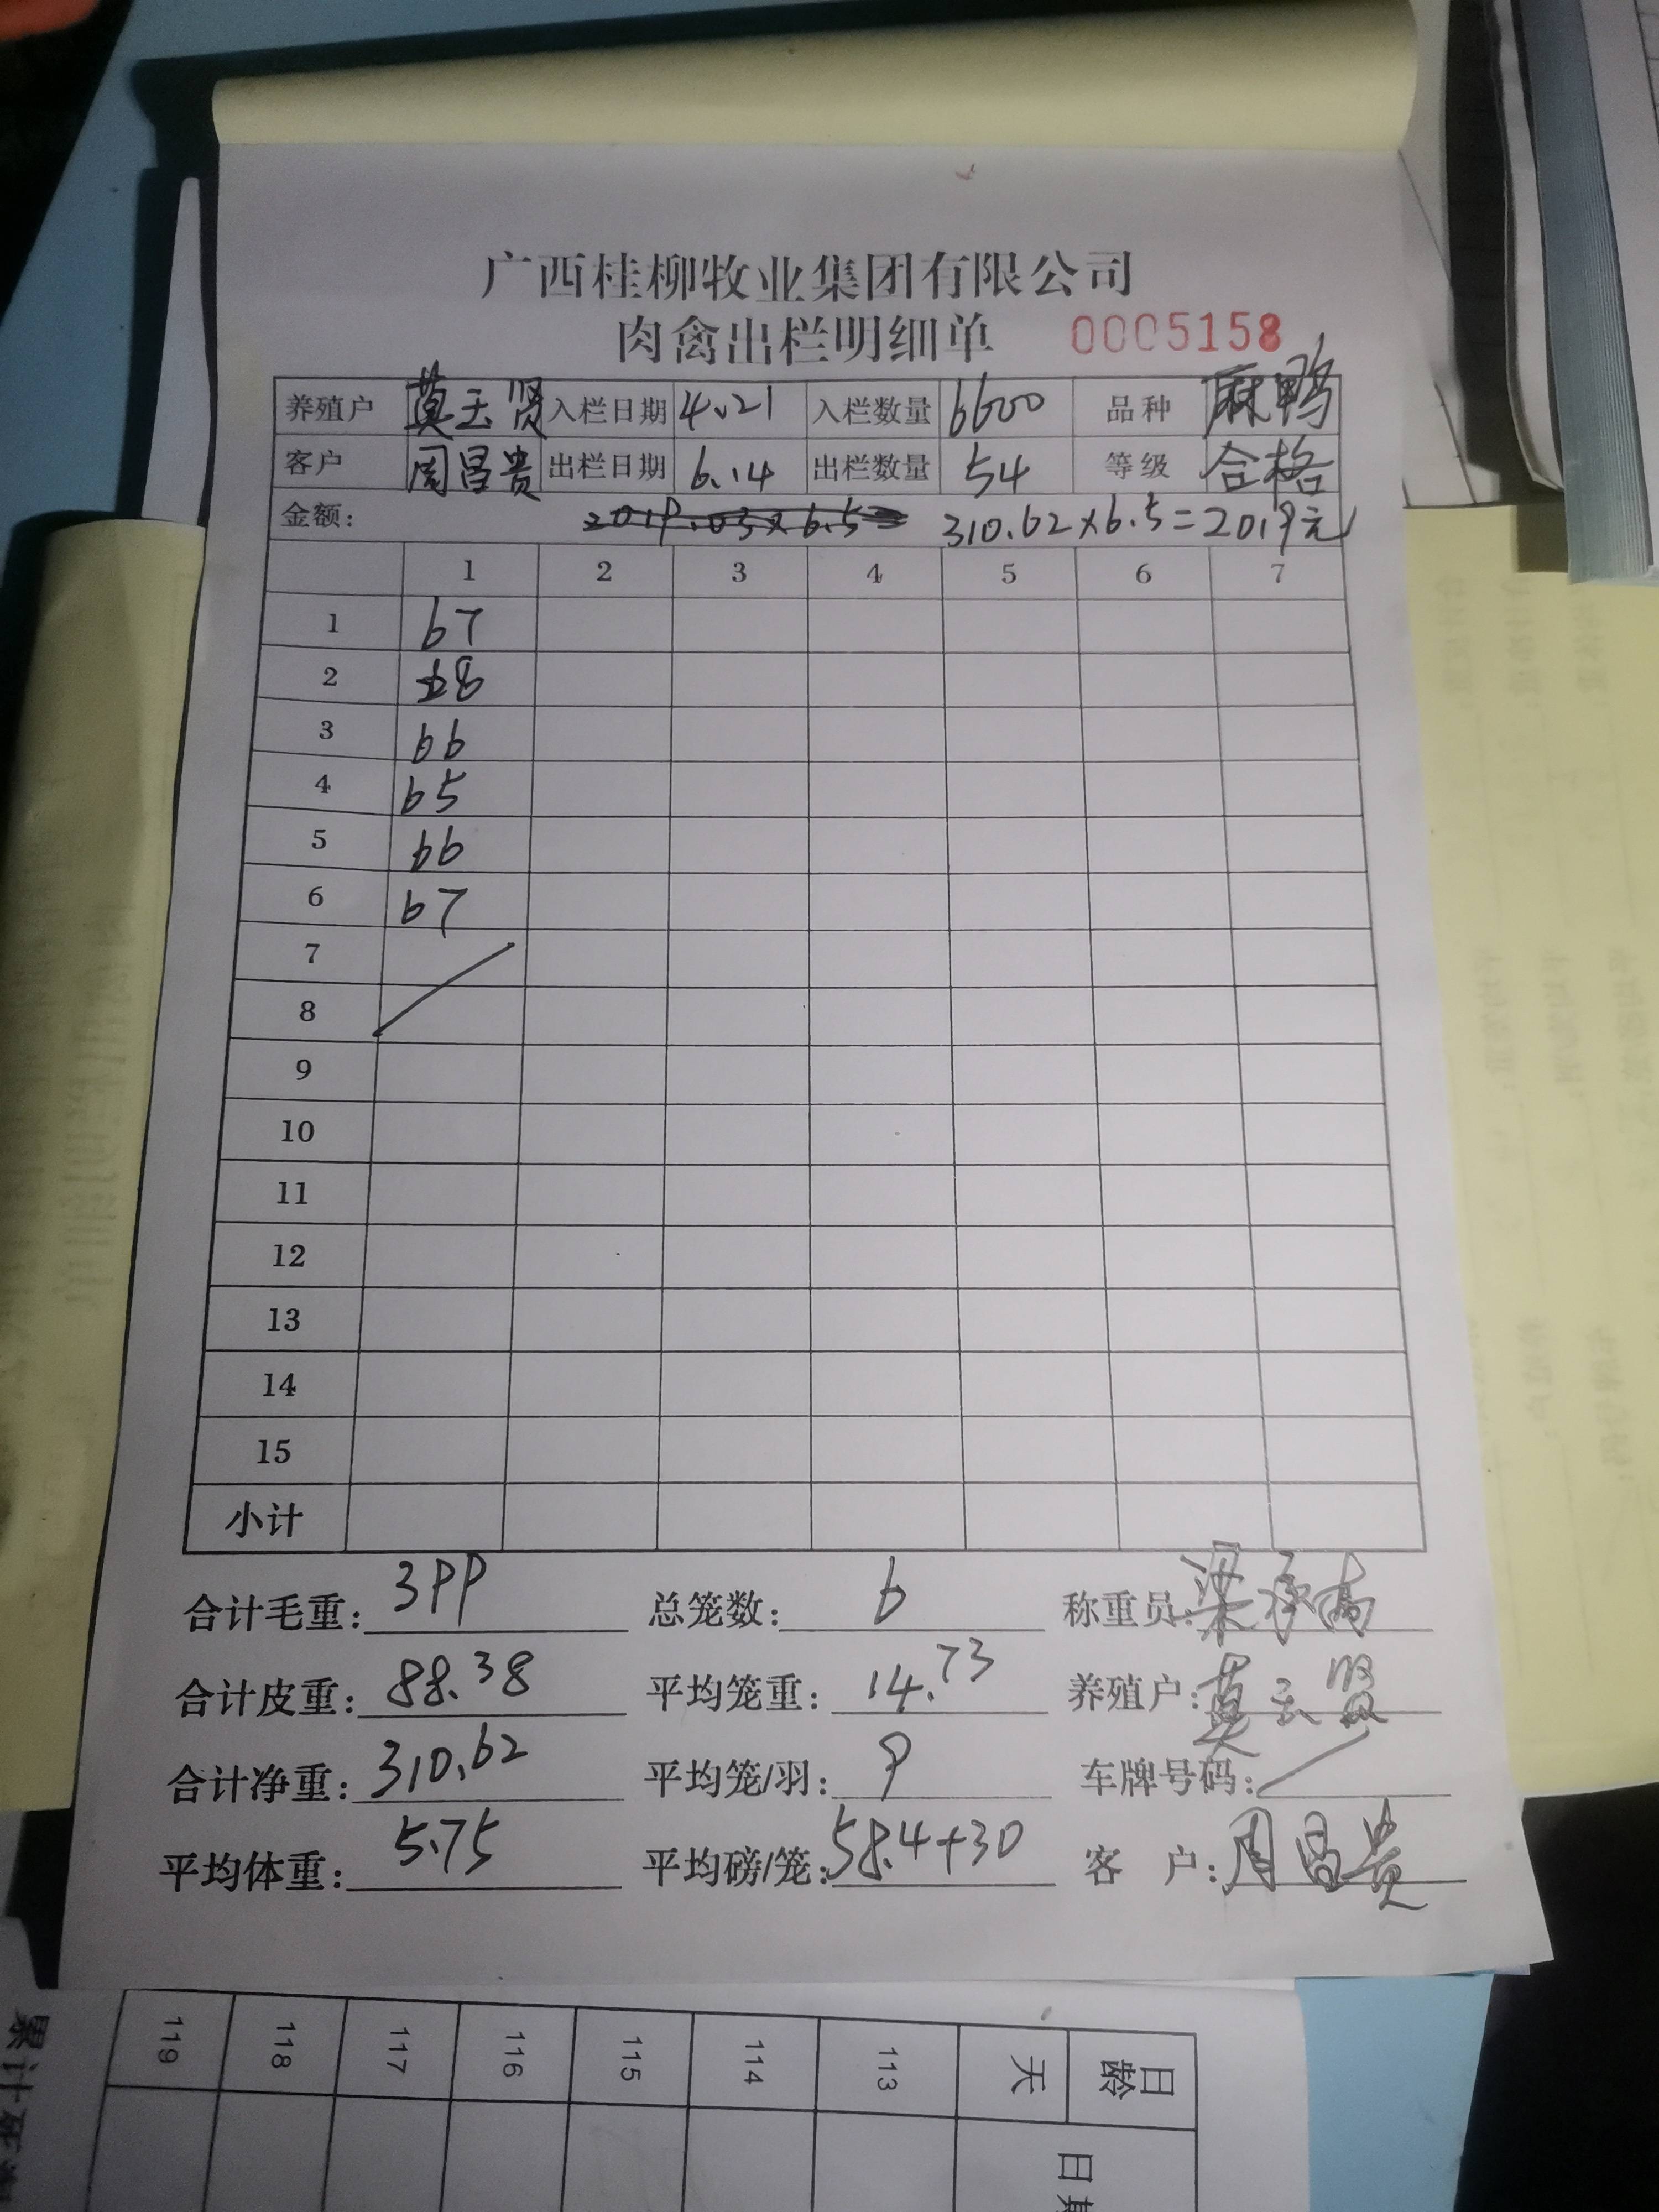 广西桂柳牧业集团有限公司
肉禽出栏明细单 0005158
养殖户 莫玉贤 入栏日期 4.21 入栏数量 6600 品种 麻鸭
客户 周昌贵 出栏日期 6.14 出栏数量 54 等级 合格
金额: 2019.03×6.5= 310.62×6.5=2019元
1 2 3 4 5 6 7
1 67
2 68
3 66
4 65
5 66
6 67
7
8
9
10
11
12
13
14
15
小计
合计毛重: 399 总笼数: 6 称重员: 梁承高
合计皮重: 88.38 平均笼重: 14.73 养殖户: 莫玉贤
合计净重: 310.62 平均笼/羽: 9 车牌号码:
平均体重: 5.75 平均磅/笼: 58.4+30 客 户: 周昌贵
累计死
119 118 117 116 115 114 113 天 日龄
日期